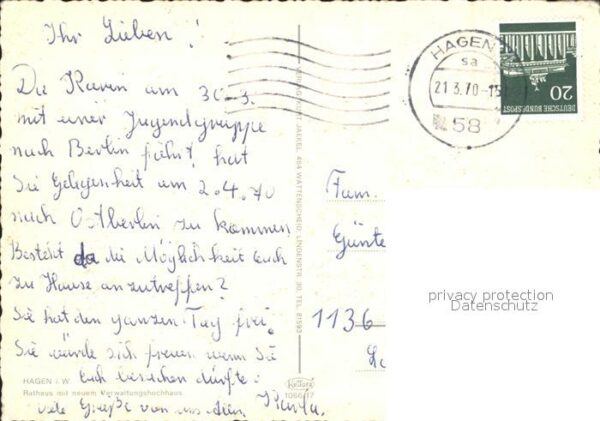 Ihr Lieben!
Da Karin am 30.3.
mit einer Jugendgruppe
nach Berlin fährt, hat
Sie Gelegenheit am 2.4.70
nach Ostberlin zu kommen
Besteht da die Möglichkeit Euch
zu Hause anzutreffen?
Sie hat den ganzen Tag frei.
Sie würde sich freuen wenn Sie
Euch besuchen dürfte.
Viele Grüße von uns allen
HAGEN i. W.
Rathaus mit neuem Verwaltungshochhaus
LINDENSTR. 30, TEL. 81593
HAGEN
sa
21.3.70-15
58
20
DEUTSCHE BUNDESPOST
Fam.
Günte
1136
privacy protection
Datenschutz